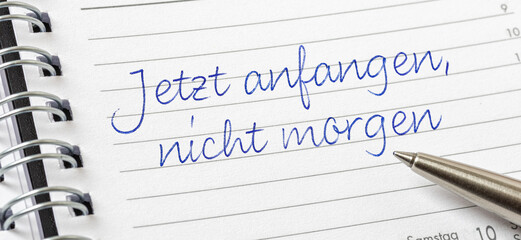 9
10
Jetzt anfangen,
nicht morgen
Samstag 10